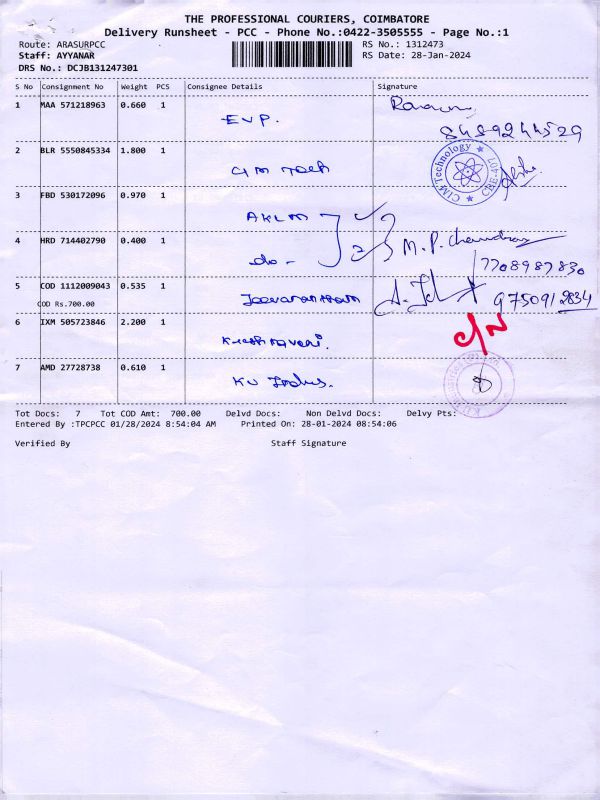 THE PROFESSIONAL COURIERS, COIMBATORE
Delivery Runsheet - PCC - Phone No.:0422-3505555 - Page No.:1
Route: ARASURPCC RS No.: 1312473
Staff: AYYANAR RS Date: 28-Jan-2024
DRS No.: DCJB131247301
S No Consignment No Weight PCS Consignee Details Signature
1 MAA 571218963 0.660 1 EVP.
8489244529
2 BLR 5550845334 1.800 1 CIM Tech CIM Technology CBE-407
3 FBD 530172096 0.970 1 AKLM
4 HRD 714402790 0.400 1 do - 2 M.P. Chandran
7708987830
5 COD 1112009043 0.535 1
COD Rs.700.00 9750912834
6 IXM 505723846 2.200 1 C/N
7 AMD 27728738 0.610 1 KV Indus.
Tot Docs: 7 Tot COD Amt: 700.00 Delvd Docs: Non Delvd Docs: Delvy Pts:
Entered By :TPCPCC 01/28/2024 8:54:04 AM Printed On: 28-01-2024 08:54:06
Verified By Staff Signature